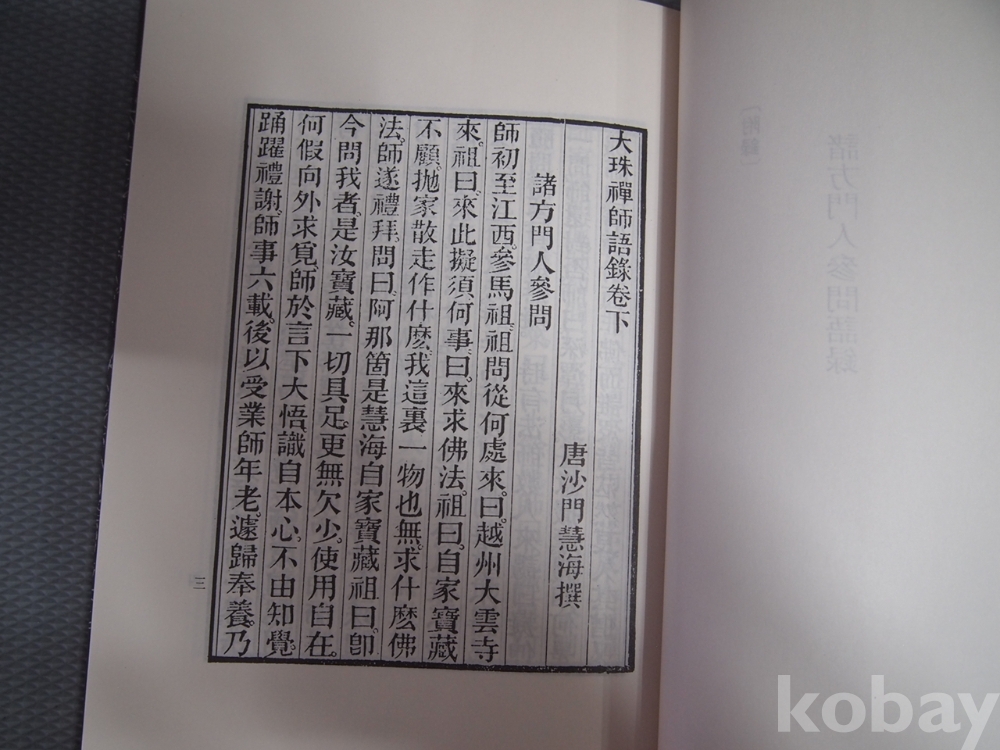 大珠禪師語錄卷下
唐沙門慧海撰
諸方門人參問
師初至江西。參馬祖。祖問從何處來。曰。越州大雲寺
來。祖曰。來此擬須何事。曰。來求佛法。祖曰。自家寶藏
不顧。抛家散走作什麼。我這裏一物也無。求什麼佛
法。師遂禮拜。問曰。阿那箇是慧海自家寶藏。祖曰。卽
今問我者。是汝寶藏。一切具足。更無欠少。使用自在。
何假向外求覓。師於言下大悟。識自本心。不由知覺。
踊躍禮謝。師事六載。後以受業師年老。遽歸奉養。乃
三
〔附錄〕
諸方門人參問語錄
kobay